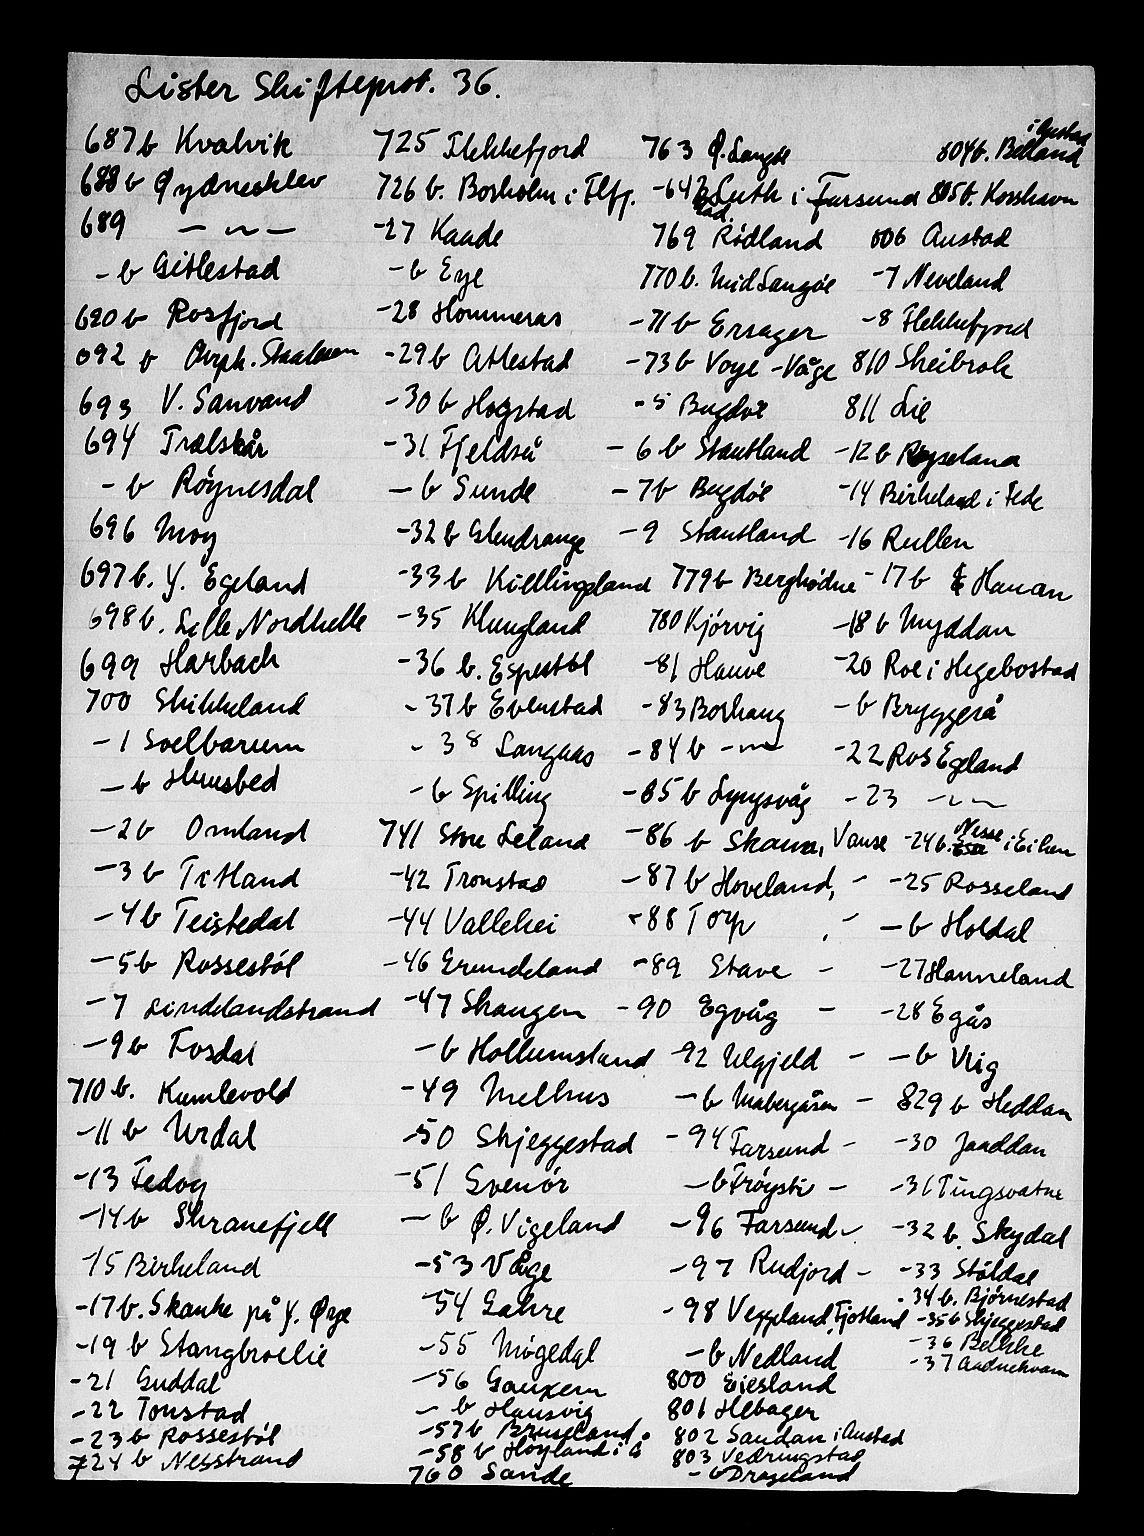 Lister Skifteprot. 36.
687b Kvalvik
688b Øydnesklev
689 — ~ —
- b Gitlestad
690b Rosfjord
692 b Orph.
693 V. Sanvand
694 Trælskår
- b Röynesdal
696 Moy
697b. Y. Egeland
698b. Lille Nordhelle
699 Harbach
700 Skikkeland
- 1 Soelbarum
- b Huusbed
- 2b Omland
- 3b Tetland
- 4b Teistedal
- 5b Rossestöl
- 7 Linddlandstrand
- 9b Fosdal
710b. Kumlevold
- 11 b Urdal
- 13 Fedog
- 14b Skranefjell
- 15 Birkeland
- 17b. Skanke på Y. Øye
- 19 b Stangbroelie
- 21 Guddal
- 22 Tonstad
- 23b Rossestöl
724b Nesstrand
725 Flekkefjord
726b. Borholm i Flfj.
- 27 Kaade
- b Eye
- 28 Hommeras
- 29b Atlestad
- 30b Hogstad
- 31 Fjeldså
- b Sunde
- 32b Glendrange
- 33b Kiellingsland
- 35 Klungland
- 36 b. Espestöl
- 37b Evenstad
- 38 Langaas
- b Spilling
741 Store Leland
- 42 Tronstad
- 44 Vallehei
- 46 Grundeland
- 47 Skaugen
- b Hollumsland
- 49 Melhus
- 50 Skjeggestad
- 51 Svenör
- b Ø. Vigeland
- 53 Våge
54 Gahre
- 55 Mögedal
- 56
- b Hausvig
- 57b Bruseland
- 58 b Höyland i Å
760 Sande
763 Ø. Langöe
- 64b Luth i Farsund
769 Rödland
770b. Mid Langöe
- 71b Ersager
- 73b Voye - Våge
- 5 Bugdöe
- 6b Stautland
- 7b Bugdöe
- 9 Stautland
779b Berghödne
780 Kjörvig
- 81 Hauve
- 83 Borhaug
- 84b - ~
- 85b Lyngsvåg
- 86 b Skarn, Vanse
- 87b Hoveland, -
- 88 Torp, -
- 89 Stave -
- 90 Egvåg -
- 92 Ulgjeld -
- b Mabergåsen -
- 94 Farsund -
- b Fröysti -
- 96 Farsund -
- 97 Rudjord -
- 98 Veggeland, Fjotland
- b Nedland
800 Eiesland
801 Hebager
802 Sandan i Austad
803 Vedringstad
- b Drageland
804b. Belland i Austad
805b. Korshavn
806 Austad
- 7 Neveland
- 8 Flekkefjord
810 Skeibrok
811 Lie
- 12b Röyseland
- 14 Birkeland i Fede
- 16 Rullen
- 17b Hanan
- 18b Myddan
- 20 Roe i Hegebostad
- b Bryggeså
- 22 Ros Egeland
- 23 - ~ -
- 24b. Nesse i Eiken
- 25 Rosseland
- b Holdal
- 27 Hanneland
- 28 Egås
- b Vrig
829b Heddan
- 30 Jaaddan
- 31 Tingsvatne
- 32b. Skydal
- 33 Stöldal
- 34b. Björnestad
- 35b Skjeggestad
- 36 Bekkhe
- 37 Aadnekvam